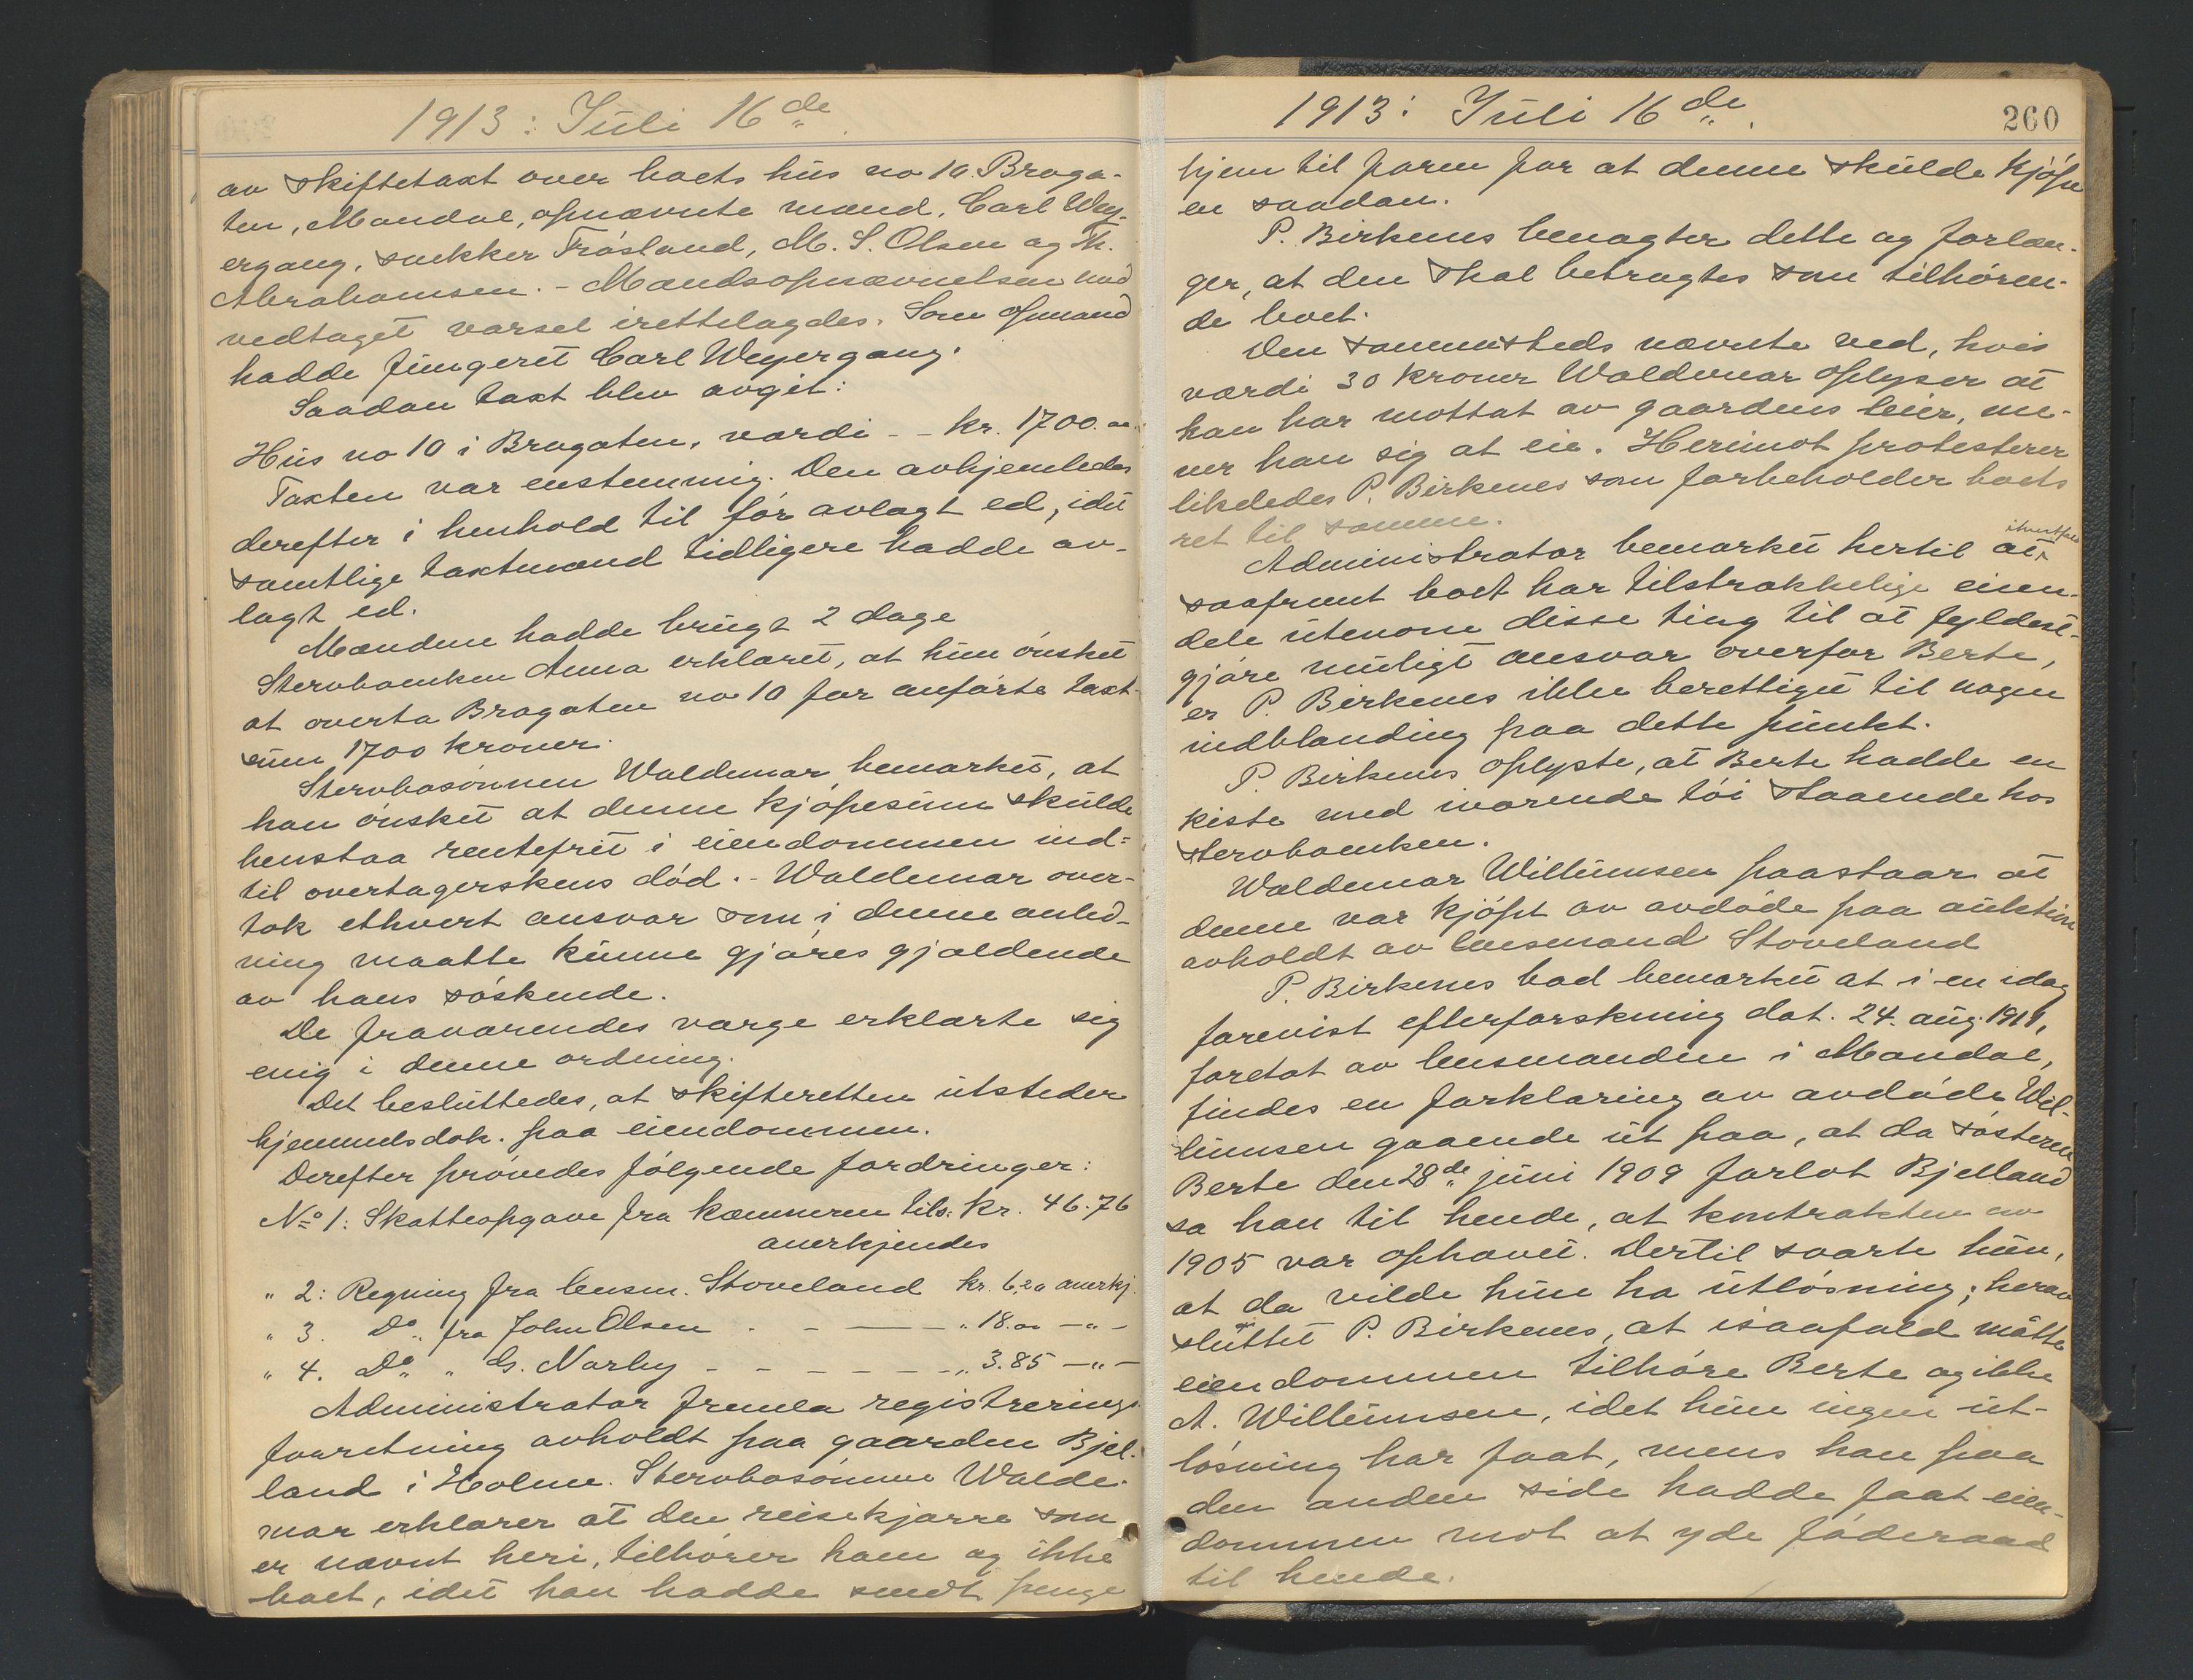 1913: Juli 16de.
av skiftetaxt over boets hus no 10 Braga-
ten, Mandal, opnævnte mænd, Carl Wey-
ergang, snekker Trøsland, M. S. Olsen og Th.
Abrahamsen. - Mandsopnævnelsen med
vedtaget varsel irettelagdes. Som opmand
hadde fungeret Carl Weyergang.
Saadan taxt blev avgit:
Hus no 10 i Bragaten, værdi - - kr. 1700.00
Taxten var enstemmig. Den avhjemledes
derefter i henhold til før avlagt ed, idet
samtlige taxtmænd tidligere hadde av-
lagt ed.
Mændene hadde brugt 2 dage
Stervboenken Anna erklæret, at hun ønsket
at overta Bragaten no 10 for anførte taxt-
sum 1700 kroner.
Stervbosønnen Waldemar bemærket, at
han ønsket at denne kjøpesum skulde
henstaa rentefrit i eiendommen ind=
til overtagerskens død. - Waldemar over-
tok ethvert ansvar som i denne anled-
ning maatte kunne gjøres gjældende
av hans søskende.
De fraværendes værge erklærte sig
enig i denne ordning.
Det besluttedes, at skifteretten utsteder
hjemmelsdok. paa eiendommen.
Derefter prøvedes følgende fordringer:
No 1: Skatteopgave fra kæmneren tils. kr. 46.76
anerkjendes
" 2: Regning fra lensm. Stoveland kr. 6,20 anerkj.
" 3. Do. fra John Olsen - - — — " 18.00 —"—
" 4. Do " G. Narby - - - - - - " 3.85 —"—
Administrator fremla registrerings
forretning avholdt paa gaarden Bjel-
land i Holme. Stervbosønnen Walde-
mar erklærer at den reisekjærre som
er nævnt heri, tilhører ham og ikke
boet, idet han hadde sendt penge
1913: Juli 16de.
260
hjem til faren for at denne skulde kjøpe
en saadan.
P. Birkenes benegter dette og forlan-
ger, at den skal betragtes som tilhøren-
de boet.
Den sammesteds nævnte ved, hvis
værdi 30 kroner Waldemar oplyser at
han har mottat av gaardens leier, me-
ner han sig at eie. Herimot protesterer
likeledes P. Birkenes som forbeholder boets
ret til samme.
Administrator bemærket hertil at ihvertfald
saafremt boet har tilstrækkelige eien-
dele utenom disse ting til at fyldest-
gjøre muligt ansvar overfor Berte,
er P. Birkenes ikke berettiget til nogen
indblanding paa dette punkt.
P. Birkenes oplyste, at Berte hadde en
kiste med iværende tøi staaende hos
stervboenken.
Waldemar Willumsen paastaar at
denne var kjøpt av avdøde paa auktion
avholdt av lensmand Stoveland
P. Birkenes bad bemærket at i en idag
forevist efterforskning dat. 24. aug. 1911,
foretat av lensmanden i Mandal,
findes en forklaring av avdøde Wil-
lumsen gaaende ut paa, at da søsteren
Berte den 28de juni 1909 forlot Bjelland
sa han til hende, at kontrakten av
1905 var ophævet. Dertil svarte hun,
at da vilde hun ha utløsning; herav
sluttet P. Birkenes, at isaafald måtte
eiendommen tilhøre Berte og ikke
A. Willumsen, idet hun ingen ut-
løsning har faat, mens han paa
den anden side hadde faat eien-
dommen mot at yde føderaad
til hende.